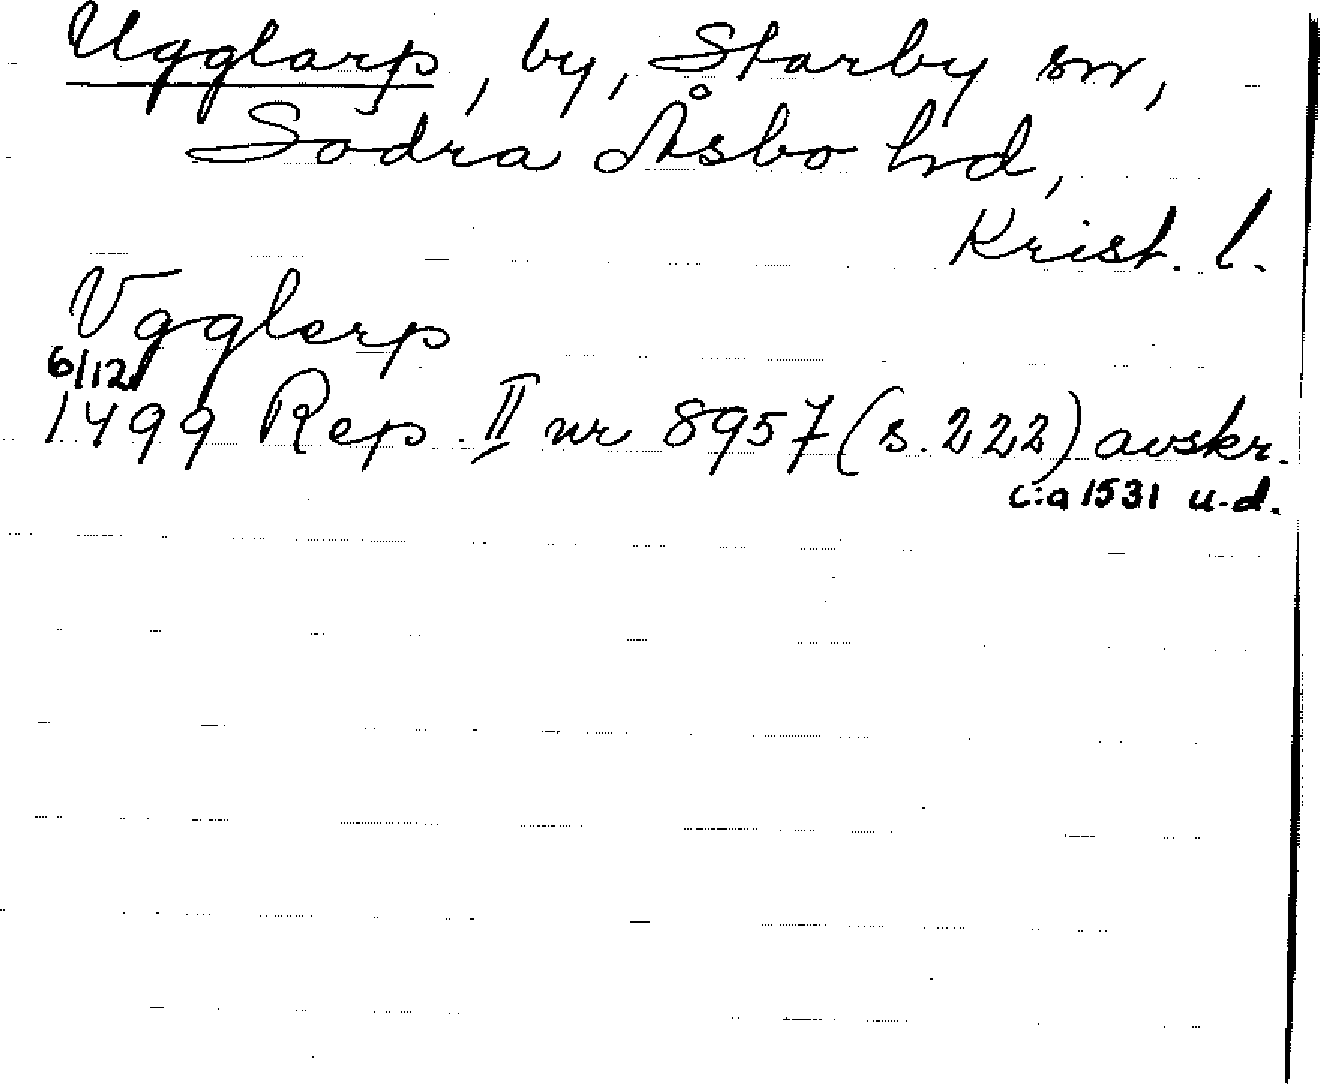 Ugglarp, by, Starby sn,
Södra Åsbo hd,
Krist. l.
Vgglerp
6/12
1499 Rep. II nr 8957 (s. 222) avskr.
c:a 1531 u.d.